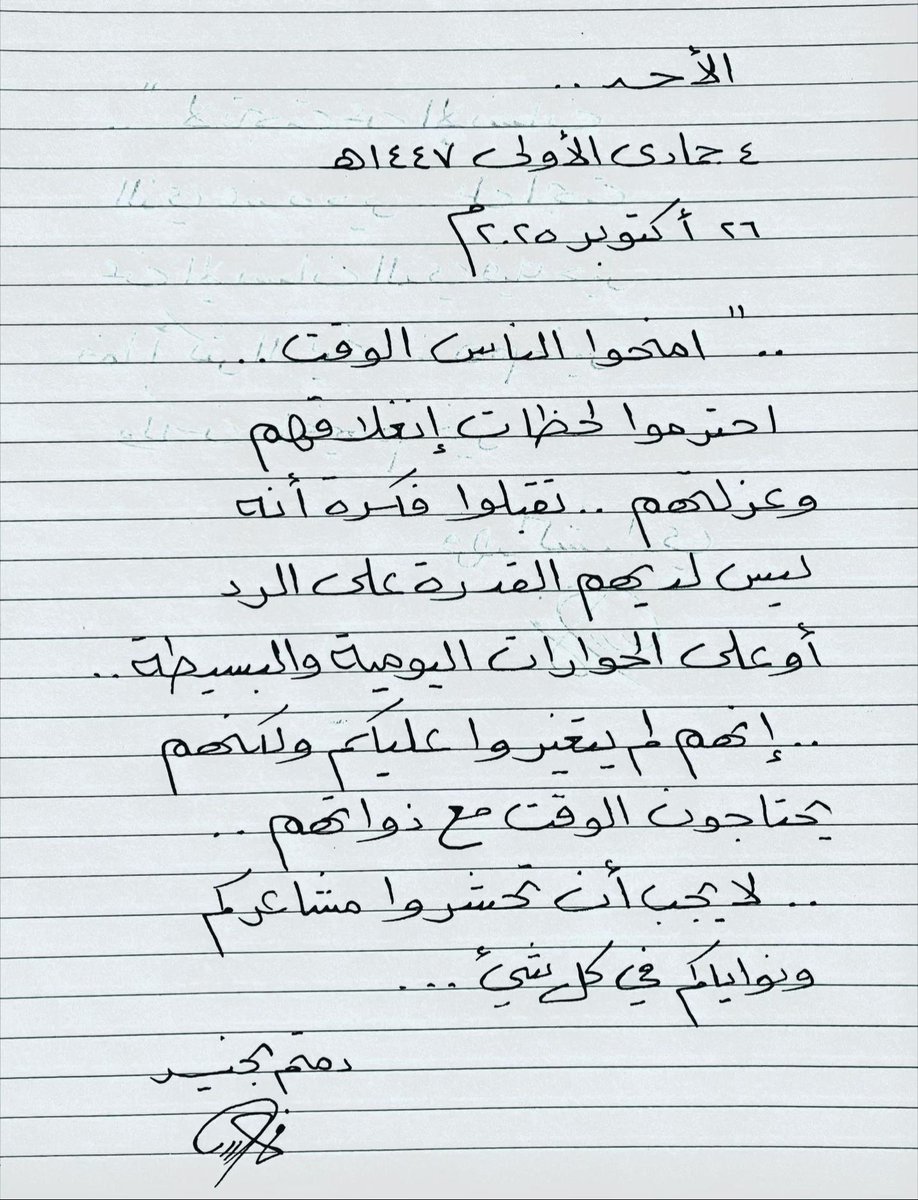 الأحد ..
٤ جمادى الأولى ١٤٤٧هـ
٢٦ أكتوبر ٢٠٢٥م
.. " امنحوا الناس الوقت ..
احترموا لحظات إنغلاقهم
وعزلتهم .. تقبلوا فكرة أنه
ليس لديهم القدرة على الرد
أو على الحوارات اليومية والبسيطة ..
.. إنهم لم يتغيروا عليكم ولكنهم
يحتاجون الوقت مع ذواتهم ..
.. لا يجب أن تحشروا مشاعركم
ونواياكم في كل شيء ...
دمتم بخير